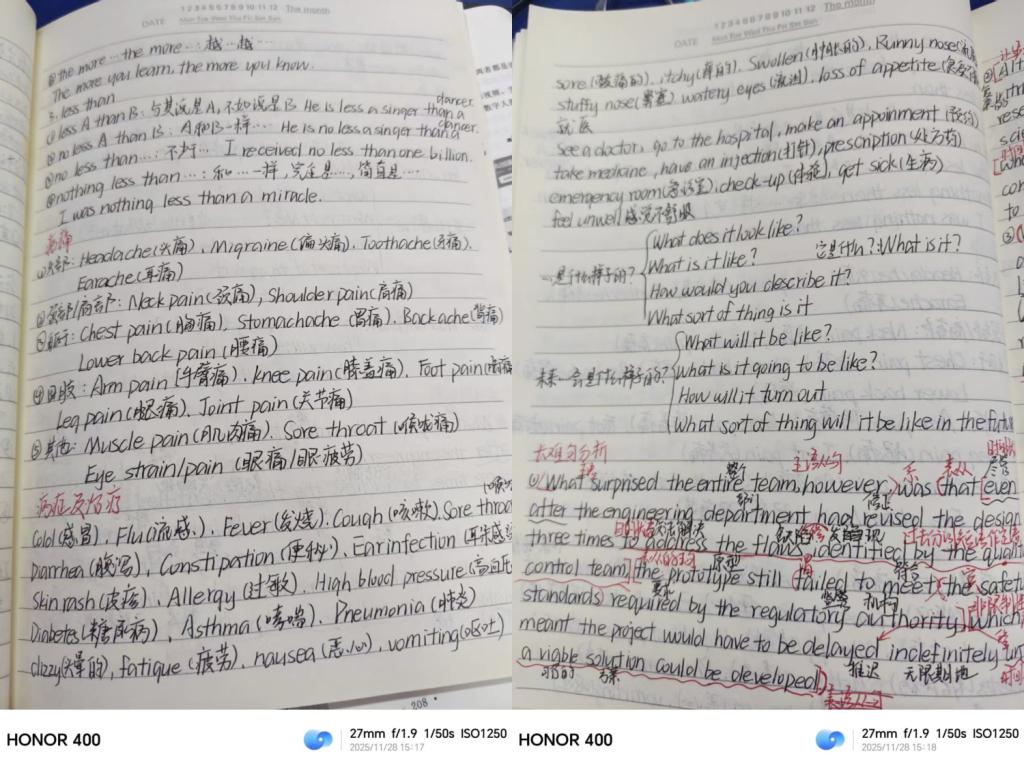 1 2 3 4 5 6 7 8 9 10 11 12 The month
DATE Mon Tue Wed Thu Fri Sat Sun
①the more … the more …: 越…越…
The more you learn, the more you know.
3. less than
① less A than B: 与其说是A, 不如说是B He is less a singer than a dancer.
② no less A than B: A和B一样… He is no less a singer than a dancer.
③ no less than …: 不少于… I received no less than one billion.
④ nothing less than …: 和…一样, 完全是…, 简直是…
I was nothing less than a miracle.
病痛
①头部: Headache(头痛)、Migraine(偏头痛)、Toothache(牙痛)、
Earache(耳痛)
② 颈部/肩部: Neck pain(颈痛), Shoulder pain(肩痛)
③ 躯干: Chest pain(胸痛)、Stomachache(胃痛)、Backache(背痛)
Lower back pain(腰痛)
④四肢: Arm pain(手臂痛)、knee pain(膝盖痛)、Foot pain
Leg pain(腿痛)、Joint pain(关节痛)
⑤其他: Muscle pain(肌肉痛)、Sore throat(喉咙痛)
Eye strain/pain(眼痛/眼疲劳)
病症及治疗
Cold(感冒)、Flu(流感)、Fever(发烧)、Cough(咳嗽)、Sore throa
Diarrhea(腹泻)、Constipation(便秘)、Ear infection(耳朵感
Skin rash(皮疹)、Allergy(过敏)、High blood pressure(高血压
Diabetes(糖尿病)、Asthma(哮喘)、Pneumonia(肺炎)
dizzy(头晕的)、fatique(疲劳)、nausea(恶心)、vomiting(呕吐)
208
HONOR 400
27mm f/1.9 1/50s ISO1250
2025/11/28 15:17
1 2 3 4 5 6 7 8 9 10 11 12 The month
DATE Mon Tue Wed Thu Fri Sat Sun
sore(酸痛的)、itchy(痒的)、Swollen(肿胀的)、Runny nose
stuffy nose(鼻塞) watery eyes(流泪)、loss of appetite
就医
see a doctor、go to the hospital、make an appoinment(预约)
take medicine、have an injection(打针)、prescription(处方药)
emergency room(急诊室)、check-up(体检)、get sick(生病)
feel unwell 感觉不舒服
What does it look like?
一是什么样子的? What is it like? 它是什么?: What is it?
How would you describe it?
What sort of thing is it
What will it be like?
未来一会是什么样子的? what is it going to be like?
How will it turn out
What sort of thing will it be like in the futu
长难句分析
主语从句 系 表从
①What surprised the entire team, however, was that even
after the engineering department had revised the design
three times to address the flaws identified by the quali
control team, the prototype still failed to meet the safet
standards required by the regulatory authority, which
meant the project would have to be delayed indefinitely un
推迟 无限期地
a viable solution could be developed
HONOR 400
27mm f/1.9 1/50s ISO1250
2025/11/28 15:18